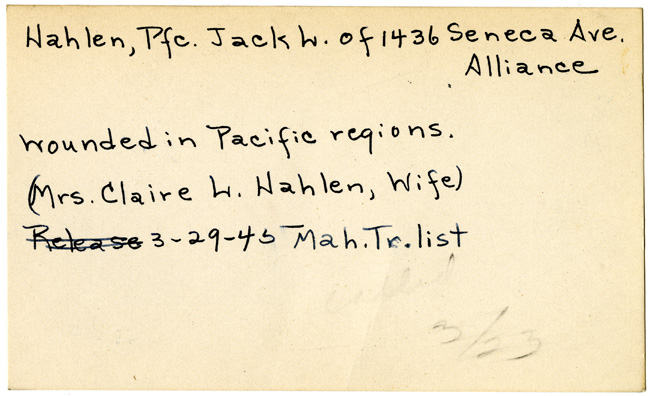 Hahlen, Pfc. Jack W. of 1436 Seneca Ave.
Alliance
wounded in Pacific regions.
(Mrs. Claire W. Hahlen, Wife)
Release 3-29-45 Mah.Tr.list
3/23